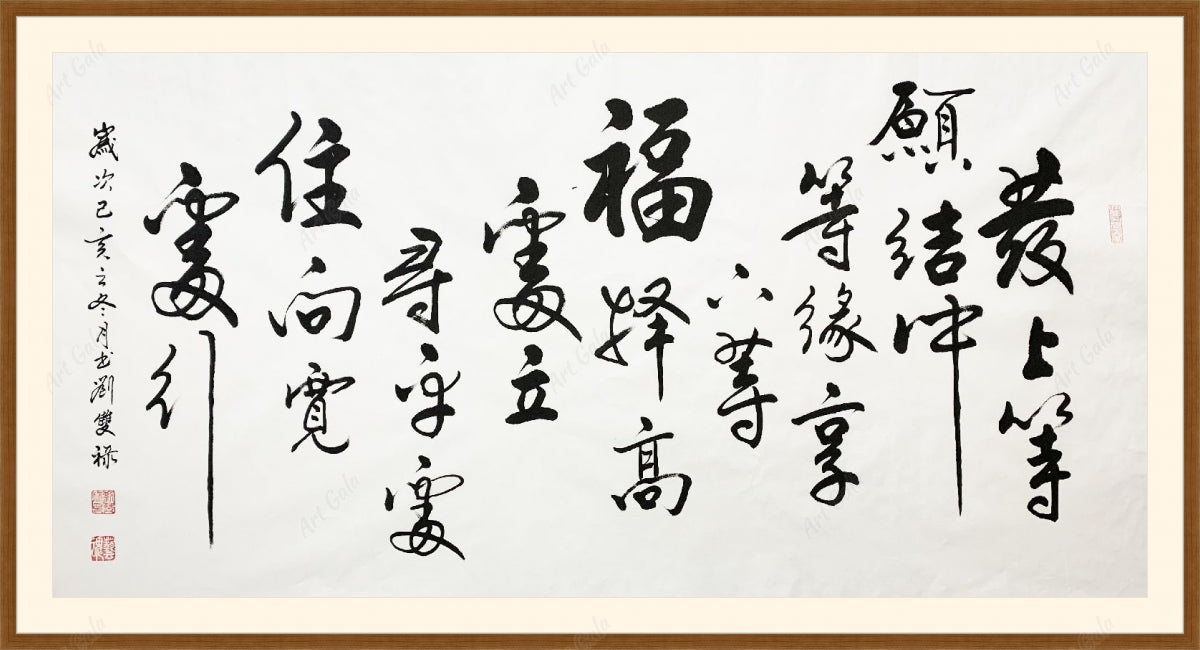 發上等
願結中
等緣享
下等
福择高
處立
寻平處
住向寬
處行
歲次己亥之冬月书劉雙祿
Art Gala